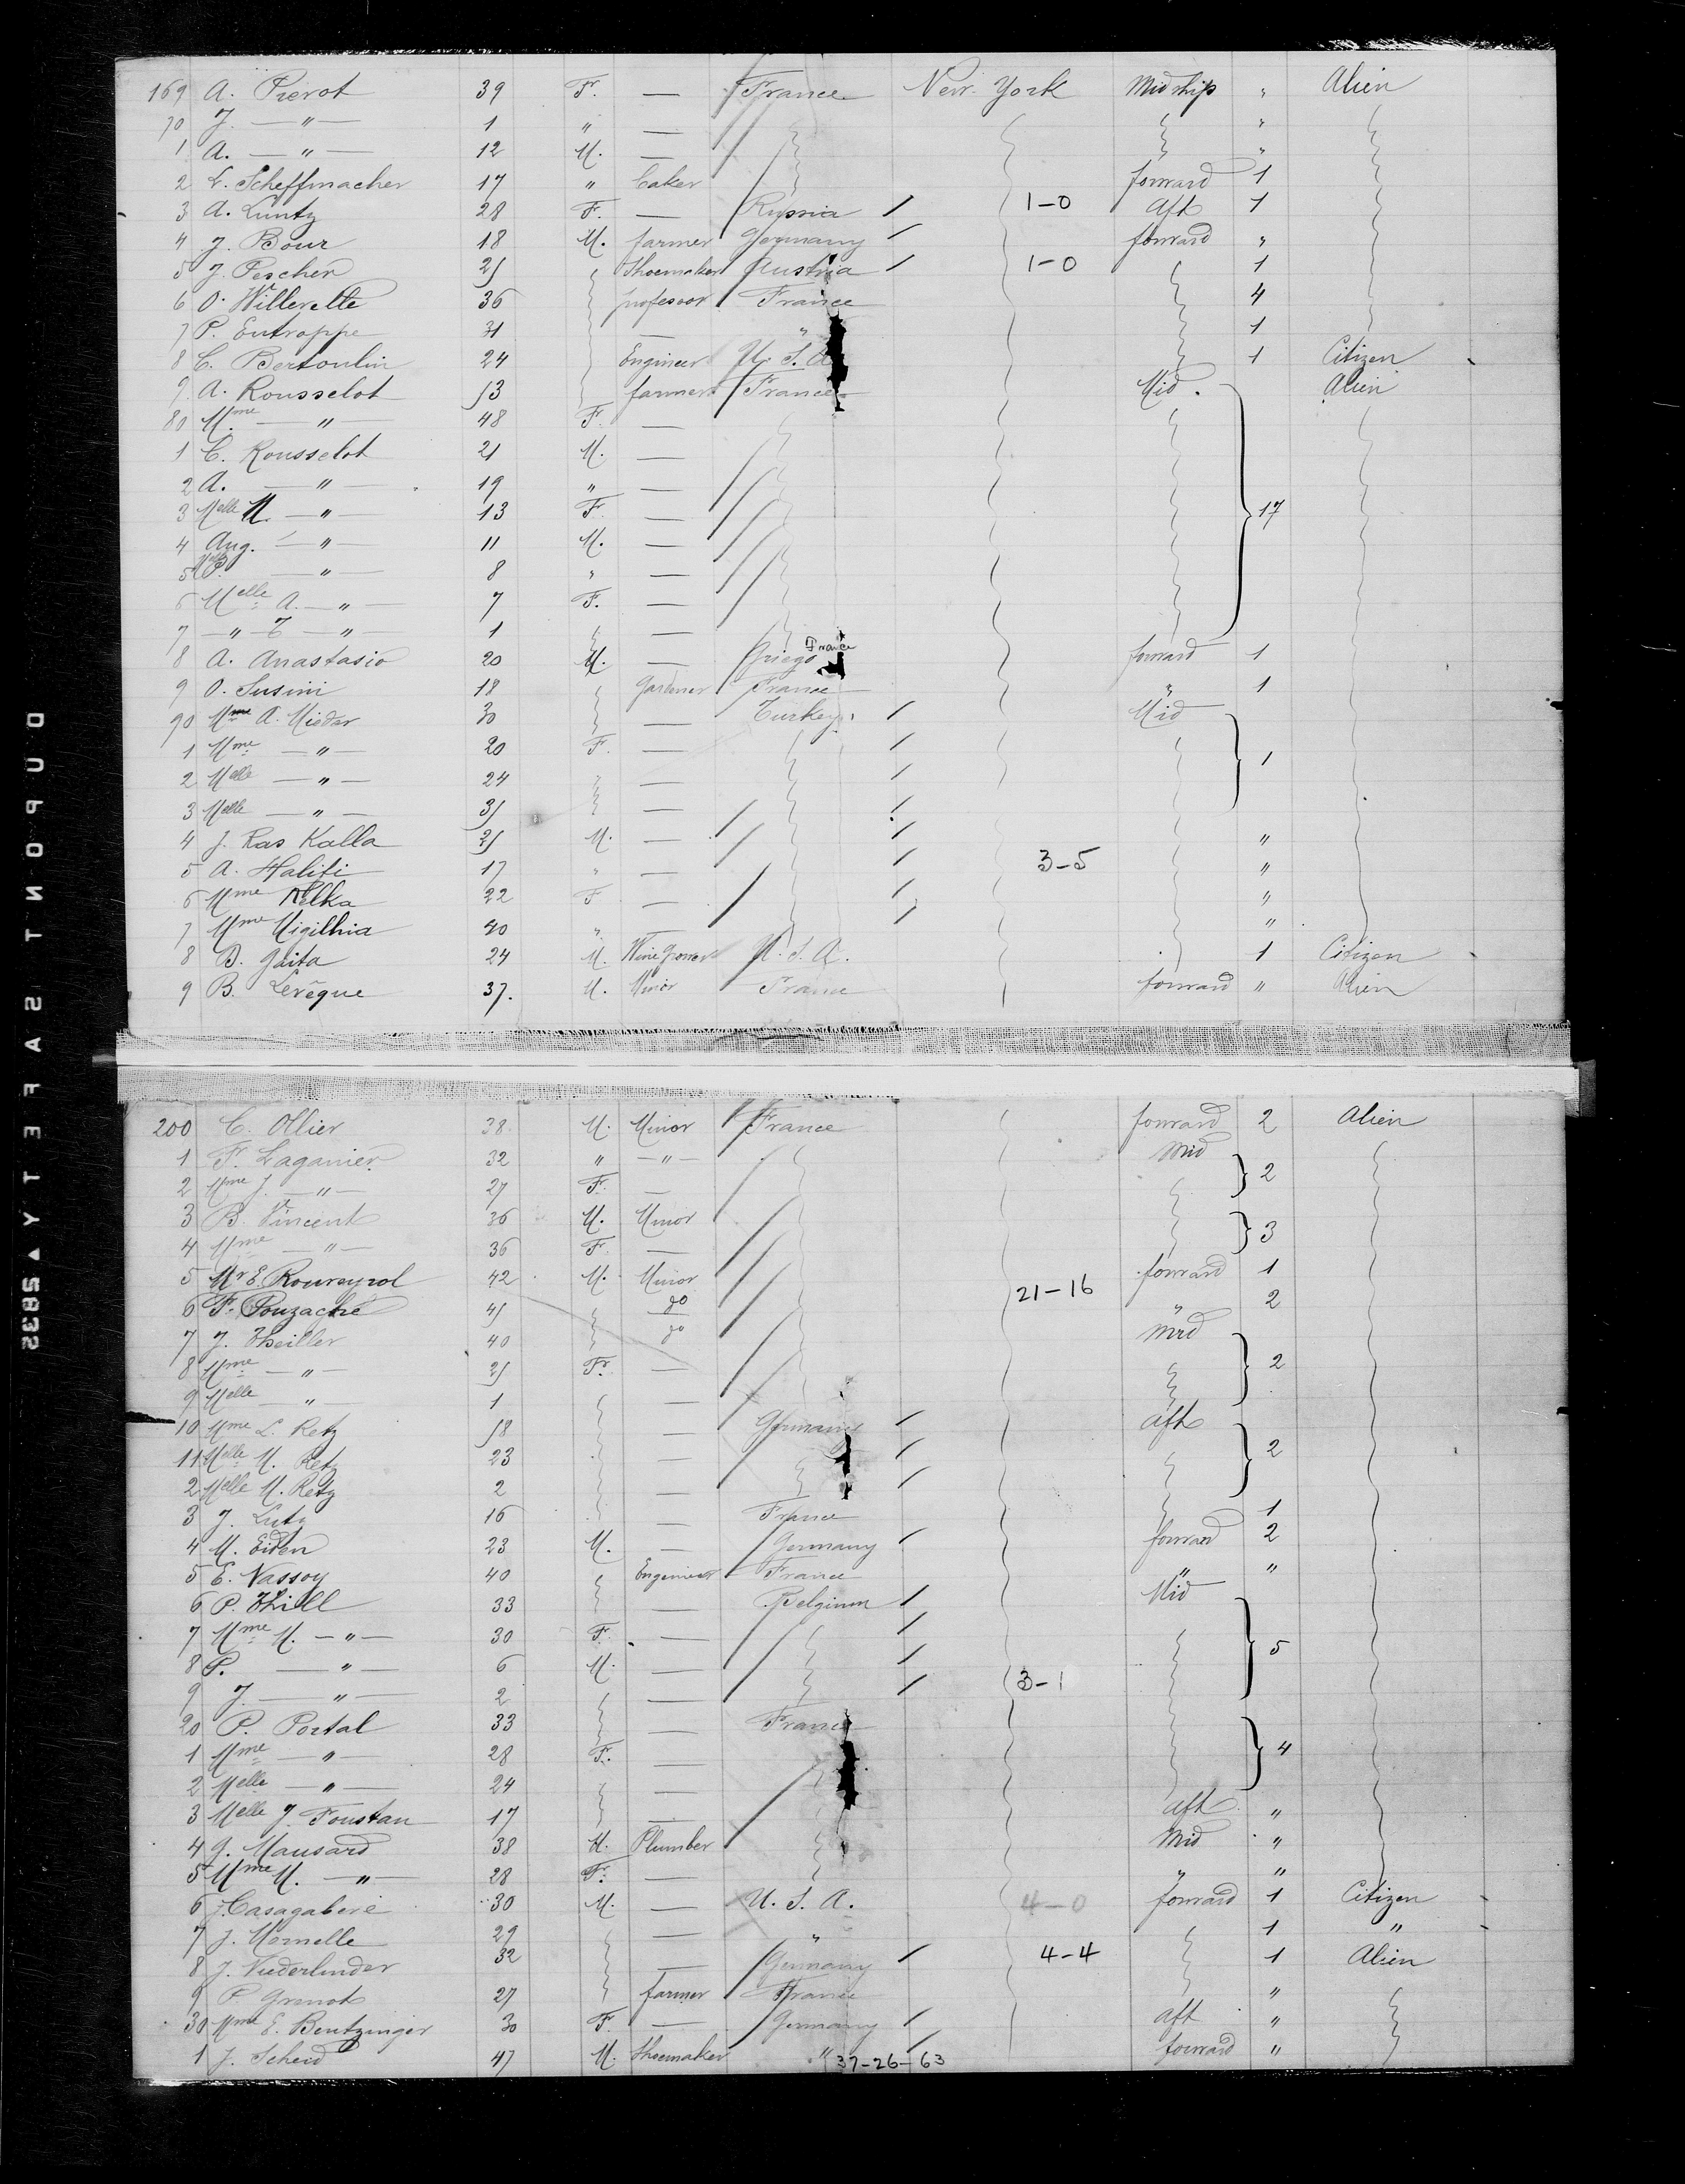 169 A. Pierot 39 F. — France New York Midship " Alien
70 J. — " — 1 " — "
1 A. — " — 12 M. — "
2 L. Scheffmacher 17 " baker forward 1
3 A. Luntz 28 F. — Russia / 1-0 Aft 1
4 J. Bour 18 M. farmer Germany / forward "
5 J. Pescher 25 Shoemaker Austria / 1-0 1
6 O. Willerette 36 profesoor France 4
7 P. Eutroppe 31 — " 1
8 C. Bertoulin 24 Engineer U. S. A 1 Citizen
9 A. Rousselot 53 farmer France Mid. Alien
80 Mme — " — 48 F. —
1 C. Rousselot 21 M. —
2 A. — " — 19 " —
3 Melle M. — " — 13 F. — 17
4 Aug. — " — 11 M. —
5 P. — " — 8 " —
6 Melle A. — " — 7 F. —
7 — " — — " — 1 —
8 A. Anastasio 20 M. — Griego France forward 1
9 O. Susini 18 Gardener France " 1
90 A. Miedar 30 — Turkey / Mid
1 Mme — " — 20 F. — / 1
2 Melle — " — 24 — /
3 Melle — " — 35 — /
4 J. Ras Kalla 25 M. — / "
5 A. Halifi 17 " — / 3-5 "
6 Mme Nelka 22 F — / "
7 Mme Migilhia 40 " — / "
8 B. Gaita 24 M. Wine Grower U. S. A. 1 Citizen
9 B. Levêque 37. M. Minor France forward " Alien
200 C. Ollier 38. M. Minor France forward 2 Alien
1 F. Laganier 32 " — " — Mid
2 Mme J. — " — 27 F. — 2
3 B. Vincent 36 M. Minor
4 Mme — " — 36 F. — 3
5 Mr E. Roureyrol 42 M. Minor forward 1
6 F. Pouzache 45 do 21-16 " 2
7 J. Theiller 40 do Mid
8 Mme — " — 25 F. — 2
9 Melle — " — 1 —
10 Mme L. Retz 58 — Germany / aft
11 Melle M. Retz 23 — / 2
2 Melle M. Retz 2 — /
3 J. Lutz 16 — France 1
4 M. Eiden 23 M. — Germany / forward 2
5 E. Vassoy 40 Engenieer France " "
6 P. Thill 33 — Belgium / Mid
7 Mme M. — " — 30 F. — /
8 P. — " — 6 M. — / 5
9 J. — " — 2 — / 3-1
20 P. Portal 33 — France
1 Mme — " — 28 F. — 4
2 Melle — " — 24 —
3 Melle J. Foustan 17 — aft "
4 J. Mausard 38 M. Plumber Mid "
5 Mme M. — " — 28 F. — " "
6 J. Casagabere 30 M. — U. S. A. 4-0 forward 1 Citizen
7 J. Mornelle 29 — " 1 "
8 J. Niederlinder 32 — Germany / 4-4 1 Alien
9 P Grenot 27 farmer France "
30 Mme E. Bentzinger 30 F. — Germany / aft "
1 J. Scheid 47 M. Shoemaker " / forward "
37-26-63
DUPONT SAFETY ▲ 5835